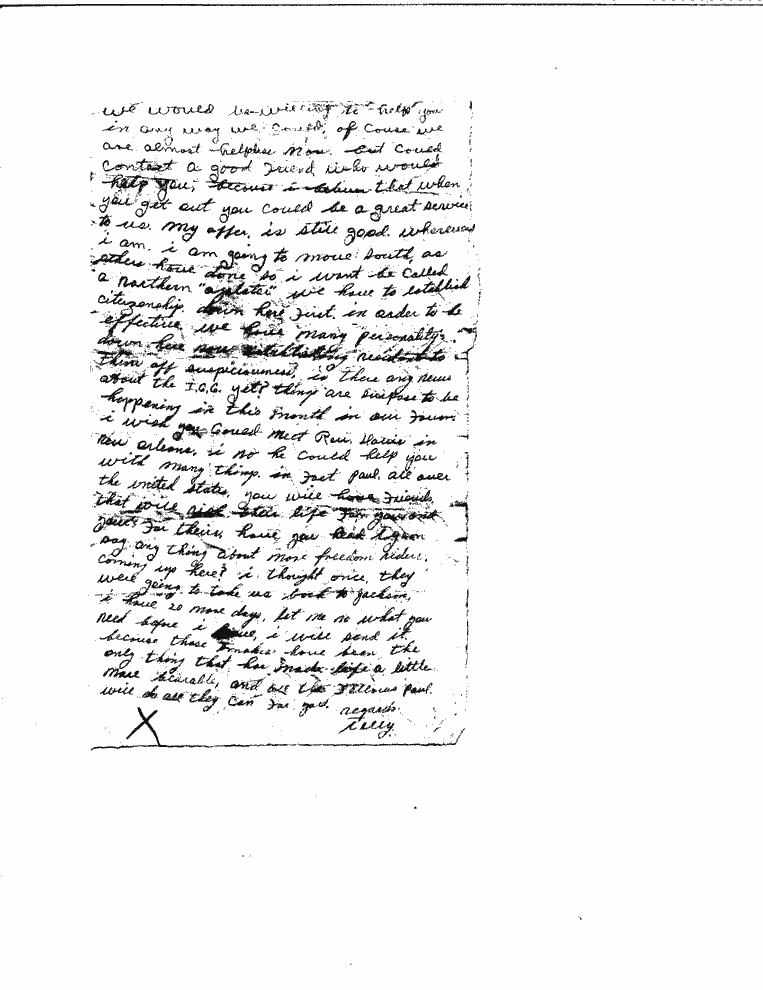 we would be willing to help you
in any way we could, of couse we
are almost helpless now. but could
contact a good friend who would
help you, because i believe that when
you get out you could be a great service
to us. my offer, is still good whereever
i am. i am going to move south, as
others have done so i want be called
a northern "agitator" we have to establish
citizenship. down here first, in order to be
effective we have many personality's
down here now establishing resident to
throw off suspiciousness, is there any news
about the I.C.C. yet? things are suspose to be
happening in this month in our favor.
i wish you could meet Rev. Davis in
new orleans, i no he could help you
with many things. in fact paul, all over
the united states, you will have friends
that will risk their life for you and
yours for theirs, have you heard
say any thing about more freedom riders,
coming up here? i thought once, they
were going to take us back to jackson,
i have 20 more days, let me no what you
need before i leave, i will send it
because those smokes have been the
only thing that has made life a little
more bearable, and all the fellows paul.
will do all they can for you. regards
X